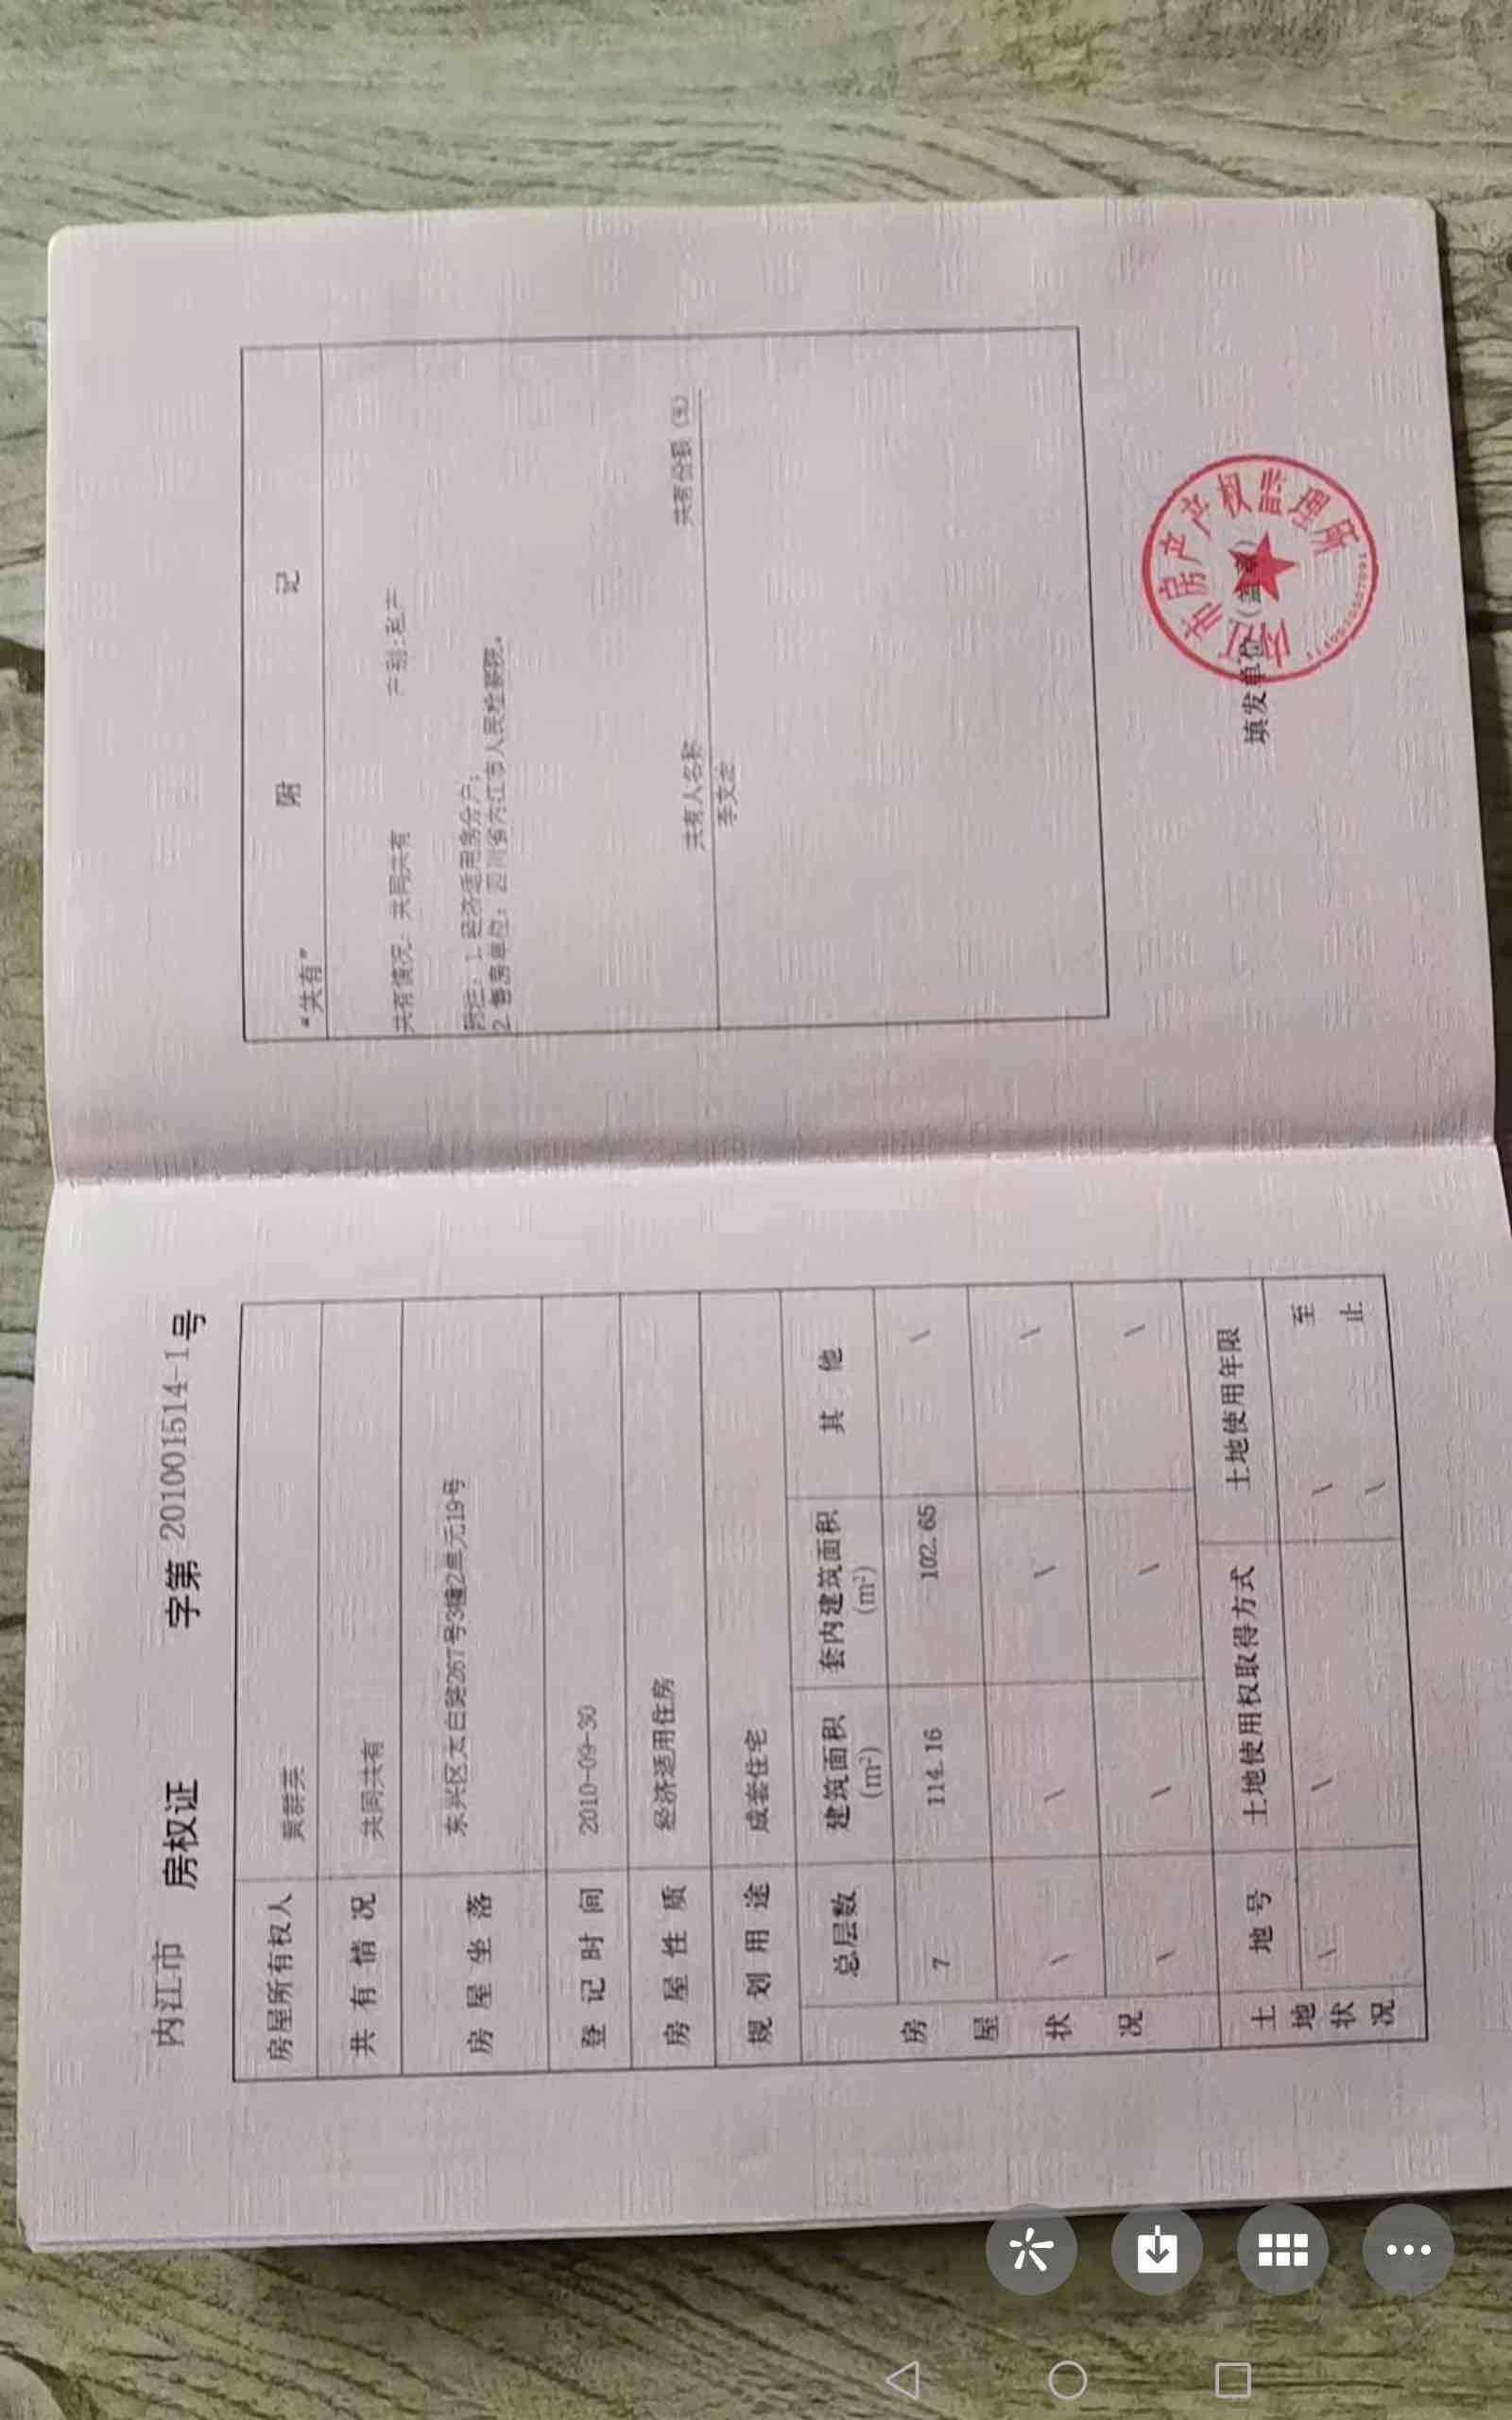 内江市 房权证 字第 201001514-1号
房屋所有权人 黄群英
共有情况 共同共有
房屋坐落 东兴区太白路267号3幢2单元19号
登记时间 2010-09-30
房屋性质 经济适用住房
规划用途 成套住宅
房屋状况
总层数 建筑面积(m²) 套内建筑面积(m²) 其他
7 114.16 102.65 \
\ \ \ \
\ \ \ \
土地状况
地号 土地使用权取得方式 土地使用年限
\ \ \ 至
\ 止
附 记
“共有”
共有情况：共同共有 产别:私产
附注：1.经济适用房分户；
2.售房单位：四川省内江市人民检察院。
共有人名称 共有份额(%)
李文志
填发单位（盖章）
内江市房产产权监理所